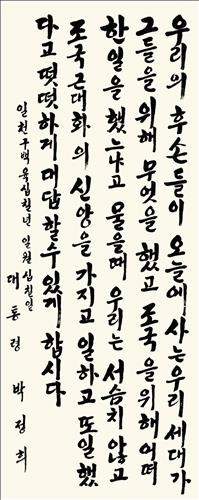 우리의 후손들이 오늘에 사는 우리 세대가
그들을 위해 무엇을 했고 조국을 위해 어떠
한 일을 했느냐고 물을때 우리는 서슴치 않고
조국근대화의 신앙을 가지고 일하고 또 일했
다고 떳떳하게 대답할수있게 합시다
일천구백육십칠년 일월 십칠일
대통령 박정희